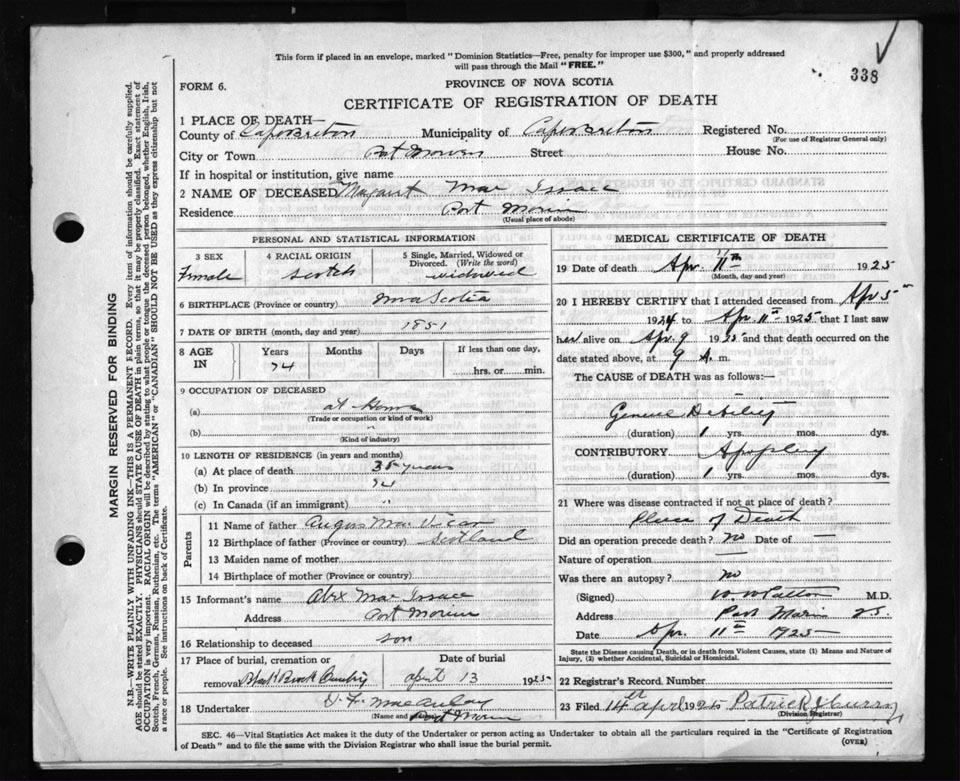 This form if placed in an envelope, marked "Dominion Statistics—Free, penalty for improper use $300," and properly addressed
will pass through the Mail "FREE."
338
FORM 6.
PROVINCE OF NOVA SCOTIA
CERTIFICATE OF REGISTRATION OF DEATH
1 PLACE OF DEATH—
County of Cape Breton Municipality of Cape Breton Registered No.
(For use of Registrar General only)
City or Town Port Morien Street House No.
If in hospital or institution, give name
2 NAME OF DECEASED Margaret Mac Issace
Residence Port Morien
(Usual place of abode)
PERSONAL AND STATISTICAL INFORMATION
3 SEX 4 RACIAL ORIGIN 5 Single, Married, Widowed or
Divorced. (Write the word)
Female Scotch widowed
6 BIRTHPLACE (Province or country) Nova Scotia
7 DATE OF BIRTH (month, day and year) 1851
8 AGE IN Years Months Days If less than one day,
74 hrs. or min.
9 OCCUPATION OF DECEASED
(a) at Home
(Trade or occupation or kind of work)
(b) "
(Kind of industry)
10 LENGTH OF RESIDENCE (in years and months)
(a) At place of death 35 years
(b) In province 74
(c) In Canada (if an immigrant) "
Parents
11 Name of father Angus Mac Vicar
12 Birthplace of father (Province or country) Scotland
13 Maiden name of mother
14 Birthplace of mother (Province or country)
15 Informant's name Alex Mac Issace
Address Port Morien
16 Relationship to deceased son
17 Place of burial, cremation or Date of burial
removal Black Brook Cemetry April 13 1925
18 Undertaker MacAulay
(Name and address) Port Morien
MEDICAL CERTIFICATE OF DEATH
19 Date of death Apr. 11th 1925
(Month, day and year)
20 I HEREBY CERTIFY that I attended deceased from Apr 5
1924 to Apr. 11th 1925 that I last saw
her alive on Apr. 9 1925 and that death occurred on the
date stated above, at 9 A. m.
The CAUSE of DEATH was as follows:—
General Debility
(duration) 1 yrs. mos. dys.
CONTRIBUTORY Apoplexy
(duration) 1 yrs. mos. dys.
21 Where was disease contracted if not at place of death?
Place of Death
Did an operation precede death? No Date of —
Nature of operation —
Was there an autopsy? No
(Signed) W W Patton M.D.
Address Port Morien
Date Apr. 11th 1925
State the Disease causing Death, or in death from Violent Causes, state (1) Means and Nature of
Injury, (2) whether Accidental, Suicidal or Homicidal.
22 Registrar's Record. Number
23 Filed 14th April 1925 Patrick J Curray
(Division Registrar)
SEC. 46—Vital Statistics Act makes it the duty of the Undertaker or person acting as Undertaker to obtain all the particulars required in the "Certificate of Registration
of Death" and to file the same with the Division Registrar who shall issue the burial permit.
(OVER)
MARGIN RESERVED FOR BINDING
N.B.—WRITE PLAINLY WITH UNFADING INK—THIS IS A PERMANENT RECORD. Every item of information should be carefully supplied.
AGE should be stated EXACTLY. PHYSICIANS should STATE CAUSE OF DEATH in plain terms, so that it may be properly classified. Exact statement of
OCCUPATION is very important. RACIAL ORIGIN will be described by stating to what people or tongue the deceased person belonged, whether English, Irish,
Scotch, French, German, Russian, Ruthenian, etc. The terms "AMERICAN" or "CANADIAN" SHOULD NOT BE USED as they express citizenship but not
a race or people. See instructions on back of Certificate.